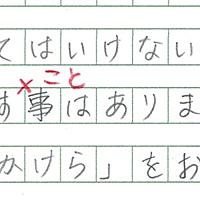 てはいけない
×こと
す事はありま
かけら」をお